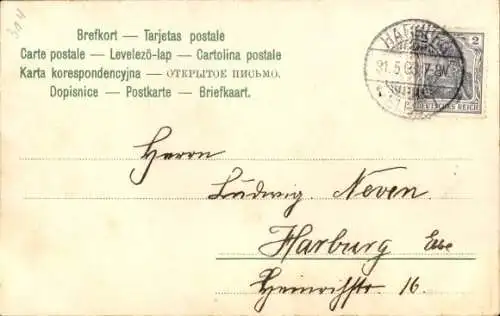 304
Brefkort — Tarjetas postale
Carte postale — Levelező-lap — Cartolina postale
Karta korespondencyjna — ОТКРЫТОЕ ПИСЬМО.
Dopisnice — Postkarte — Briefkaart.
HARBURG
31.5.03 7-8V
2
DEUTSCHES REICH
Herrn
Ludwig Neven.
Harburg Elbe
Heinrichstr 16.